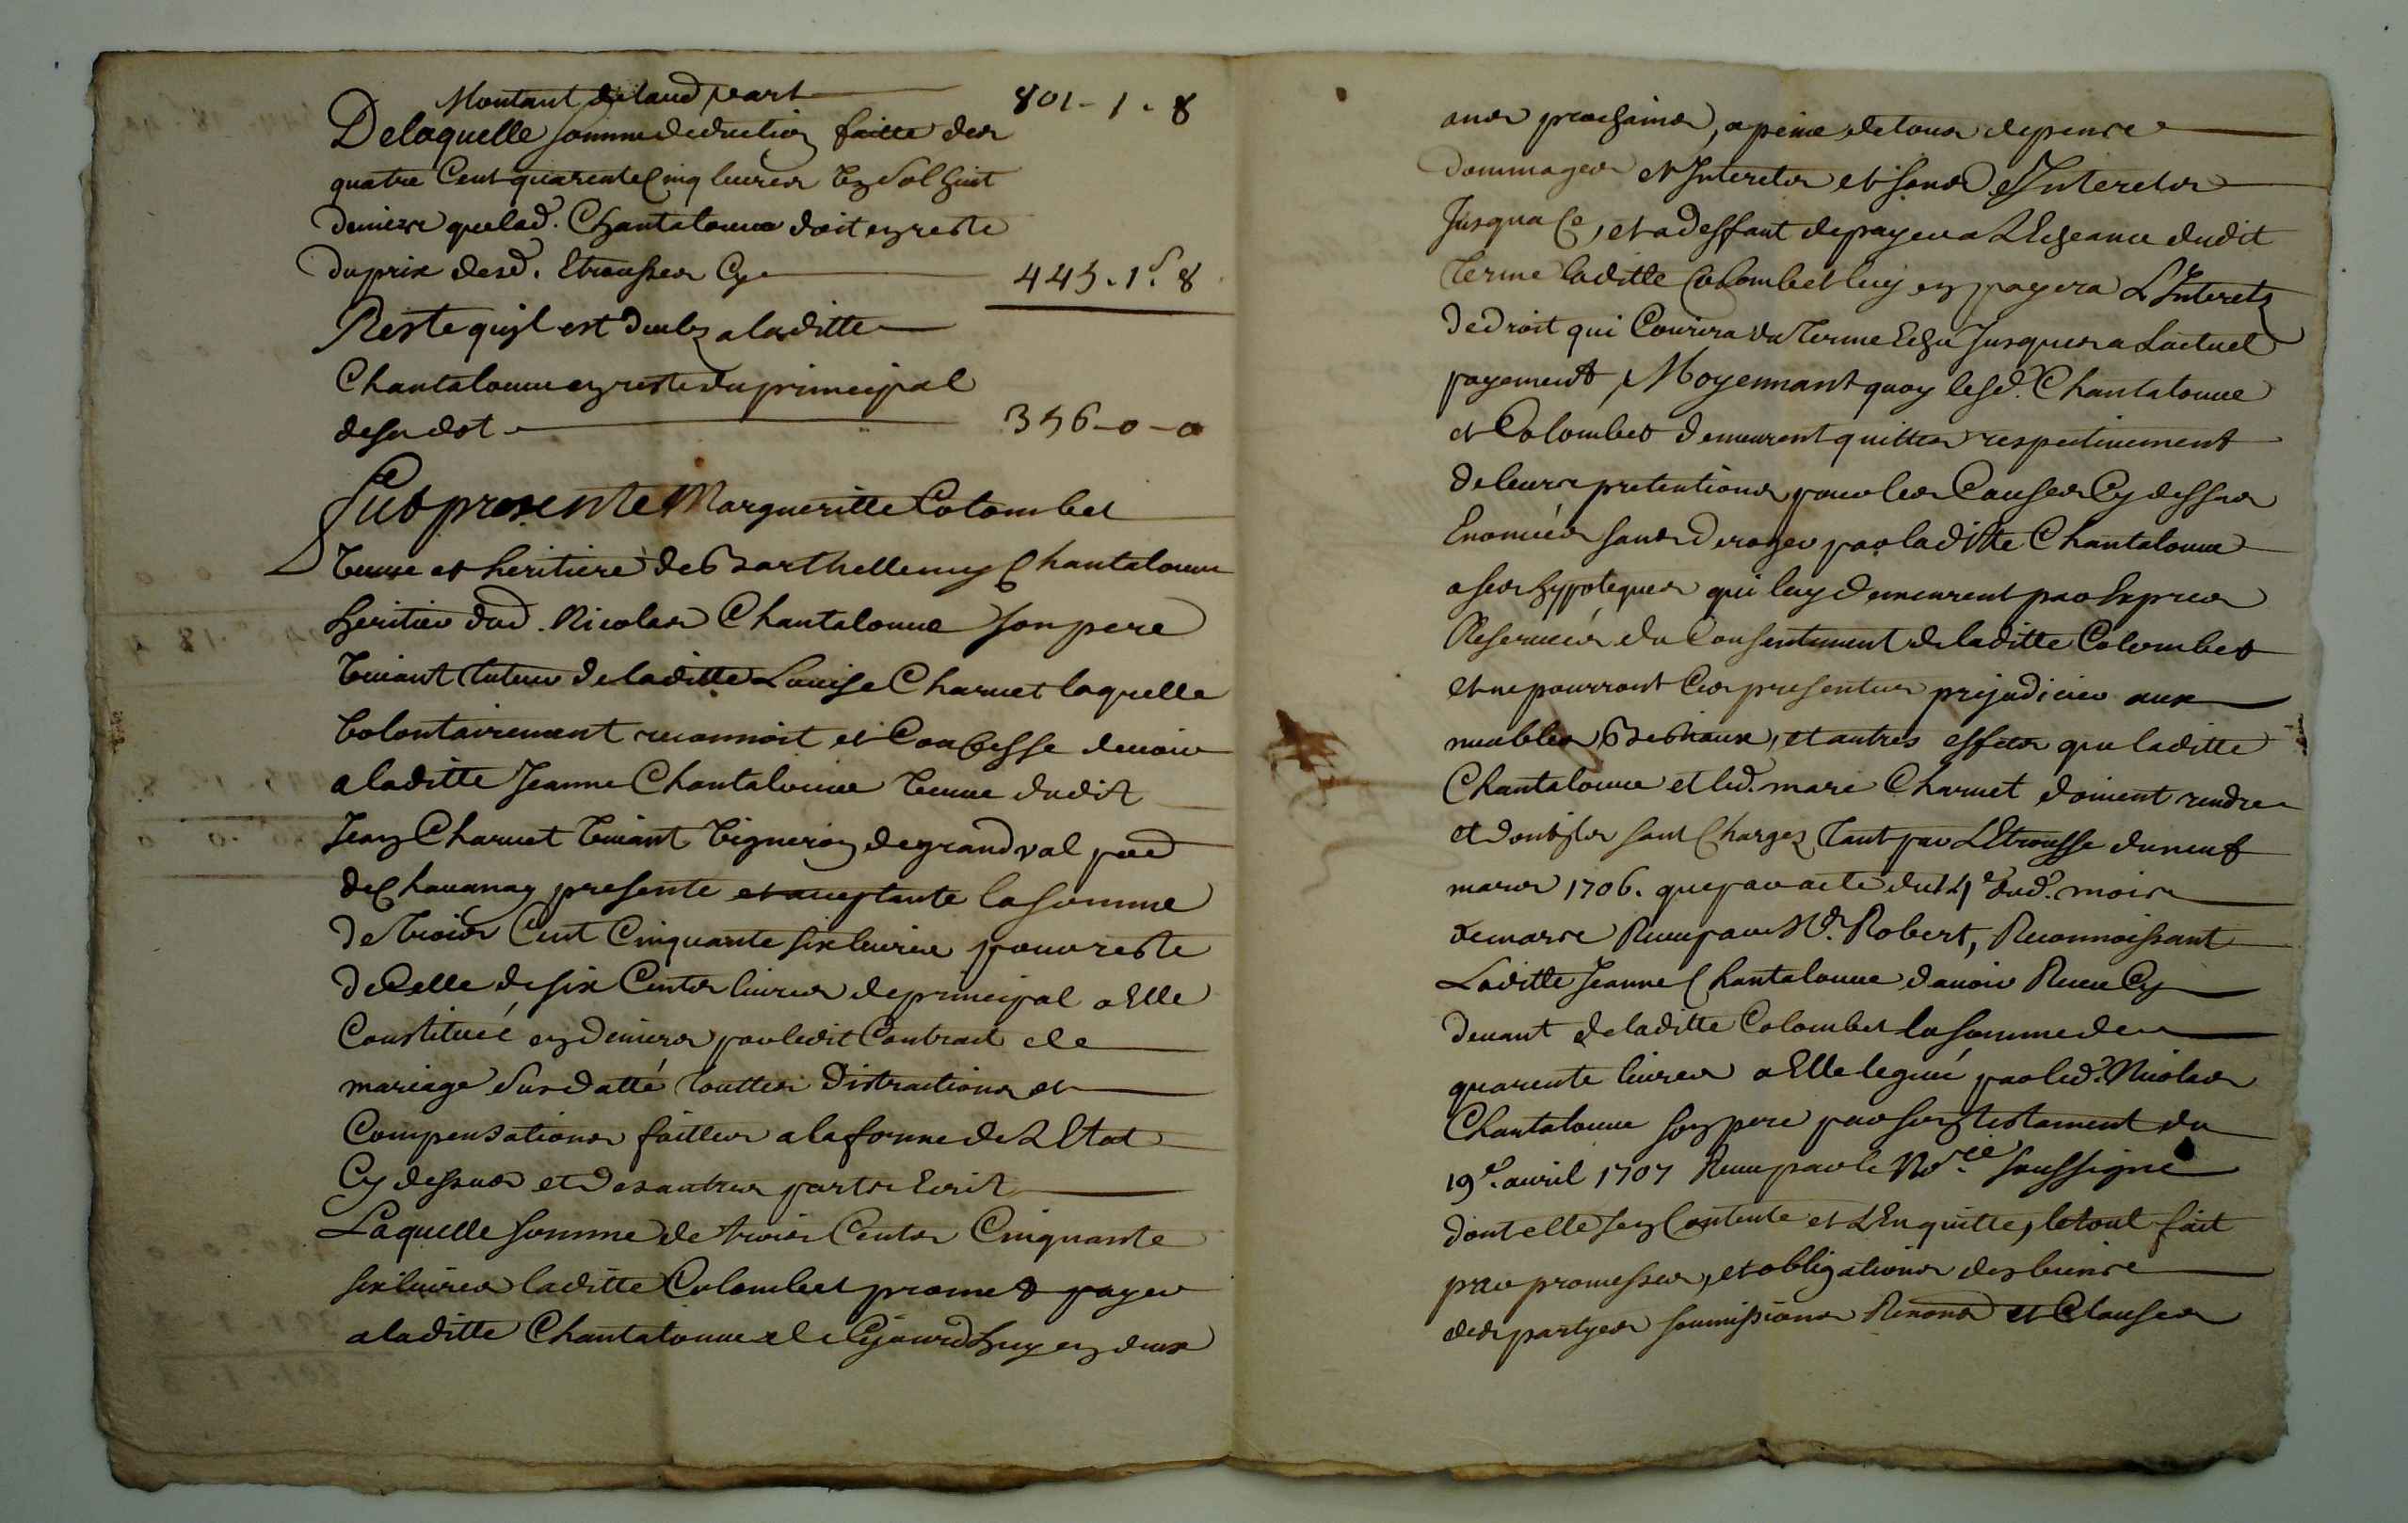 Montant de laud part 801 - 1 - 8
De laquelle somme deduction faitte des
quatre Cent quarente Cinq livres un sol huit
deniers que lad. Chantalouue doit en reste
du prix desd. Etrousses Cy 445. 1s. 8
Reste quil est deub a laditte
Chantalouue en reste du principal
de sa dot 356 - 0 - 0
Fut presente Margueritte Colombet
veuue et heritiere de Barthellemy Chantalouue
heritier dud. Nicolas Chantalouue son pere
viuant tuteur de laditte Louise Charuet laquelle
volontairement reconnoit et Confesse deuoir
a laditte Jeanne Chantalouue veuue dudit
Jean Charuet viuant vigneron de grand val pard
de Chauanay presente et acceptante la somme
de trois Cent Cinquante six liures pour reste
de Celle de six Cents liures de principal a Elle
Constituée en deniers par ledit Contract de
mariage susdatté touttes distractions et
Compensations faittes a la forme de LEtat
Cy dessus et des autres parts Ecrit
Laquelle somme de trois Cents Cinquante
six liures laditte Colombet promet payer
a laditte Chantalouue de Cejourdhuy en deux
ans prochains, a peine de tous depense
dommages et Interets et sans Interets
Jusqua Ce, et a deffaut de payer a LEcheance dudit
terme laditte Colombet luy en payera LInterets
de droit qui Courira du terme Echu Jusques a Lactuel
payement, Moyennant quoy lesd. Chantalouue
et Colombet demeurent quittes respectiuement
de leurs pretentions pour les Causes Cy dessus
Enoncées sans deroger par laditte Chantalouue
a ses hypoteques qui luy demeurent par Expres
Reseruées du Consentement de laditte Colombet
et ne pourront Ces presentes prejudicier aux
meubles Bestiaux, et autres effets que laditte
Chantalouue et led. mari Charuet doiuent rendre
et dont ils sont Chargez tant par LEtrousse du neuf
mars 1706. que par acte du 14e dud. mois
de mars Receu par Me. Robert, Reconnoissant
Laditte Jeanne Chantalouue dauoir Receu Cy
deuant de laditte Colombet la somme de
quarente liures a Elle legué par led. Nicolas
Chantalouue son pere par son testament du
19e. auril 1707 Receu par le Nore soussigné
dont elle sen Contente et LEn quitte, le tout fait
par promesses, et obligations des biens
des partyes soumissions Renons et Clauses